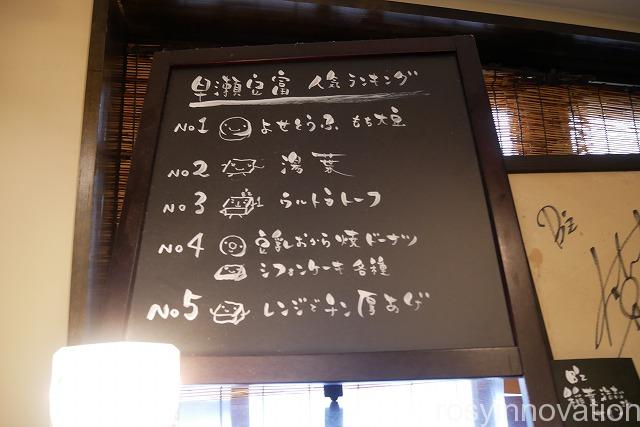 早瀬豆富 人気ランキング
No1 よせとうふ もち大豆
No2 湯葉
No3 ウルトラトーフ
No4 豆乳おから焼ドーナツ
シフォンケーキ各種
No5 レンジでチン厚あげ
B'z
B'z
稲葉
rosyinnovation